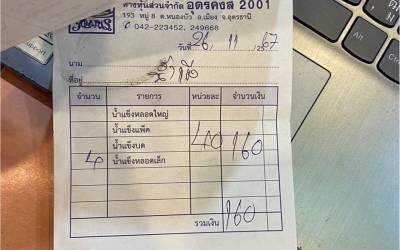 ห้างหุ้นส่วนจำกัด อุดรคงส 2001
193 หมู่ 8 ต.หนองบัว อ.เมือง จ.อุดรธานี
042-223452, 249668
วันที่ 26 / 11 / 2567
นาม
ที่อยู่
จำนวน รายการ หน่วยละ จำนวนเงิน
น้ำแข็งหลอดใหญ่
น้ำแข็งแพ็ค
น้ำแข็งบด 40 160
4 น้ำแข็งหลอดเล็ก
รวมเงิน 160